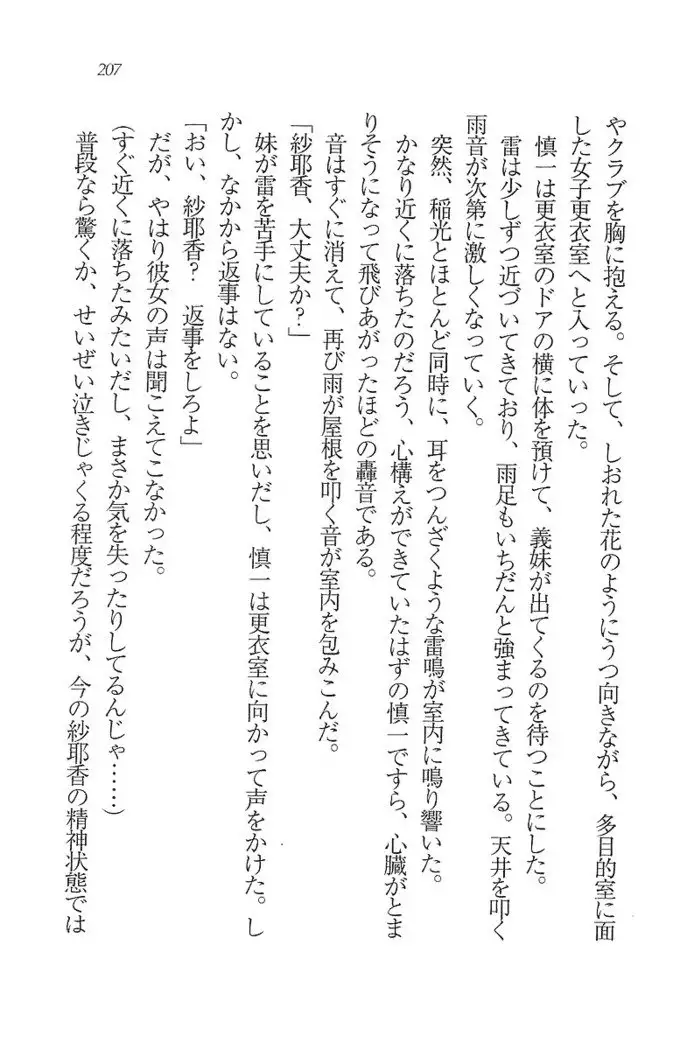 207
やクラブを胸に抱える。そして、しおれた花のようにうつ向きながら、多目的室に面
した女子更衣室へと入っていった。
慎一は更衣室のドアの横に体を預けて、義妹が出てくるのを待つことにした。
雷は少しずつ近づいてきており、雨足もいちだんと強まってきている。天井を叩く
雨音が次第に激しくなっていく。
突然、稲光とほとんど同時に、耳をつんざくような雷鳴が室内に鳴り響いた。
かなり近くに落ちたのだろう、心構えができていたはずの慎一ですら、心臓がとま
りそうになって飛びあがったほどの轟音である。
音はすぐに消えて、再び雨が屋根を叩く音が室内を包みこんだ。
「紗耶香、大丈夫か?」
妹が雷を苦手にしていることを思いだし、慎一は更衣室に向かって声をかけた。し
かし、なかから返事はない。
「おい、紗耶香? 返事をしろよ」
だが、やはり彼女の声は聞こえてこなかった。
(すぐ近くに落ちたみたいだし、まさか気を失ったりしてるんじゃ……)
普段なら驚くか、せいぜい泣きじゃくる程度だろうが、今の紗耶香の精神状態では